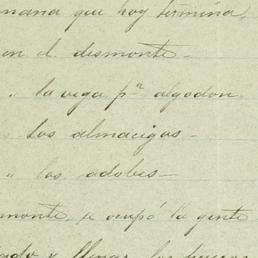 mana que hoy termina,
en el desmonte —
" la vega pª algodon
los almacigas —
" los adobes —
monte, se ocupó la gente
y llenar los huecos